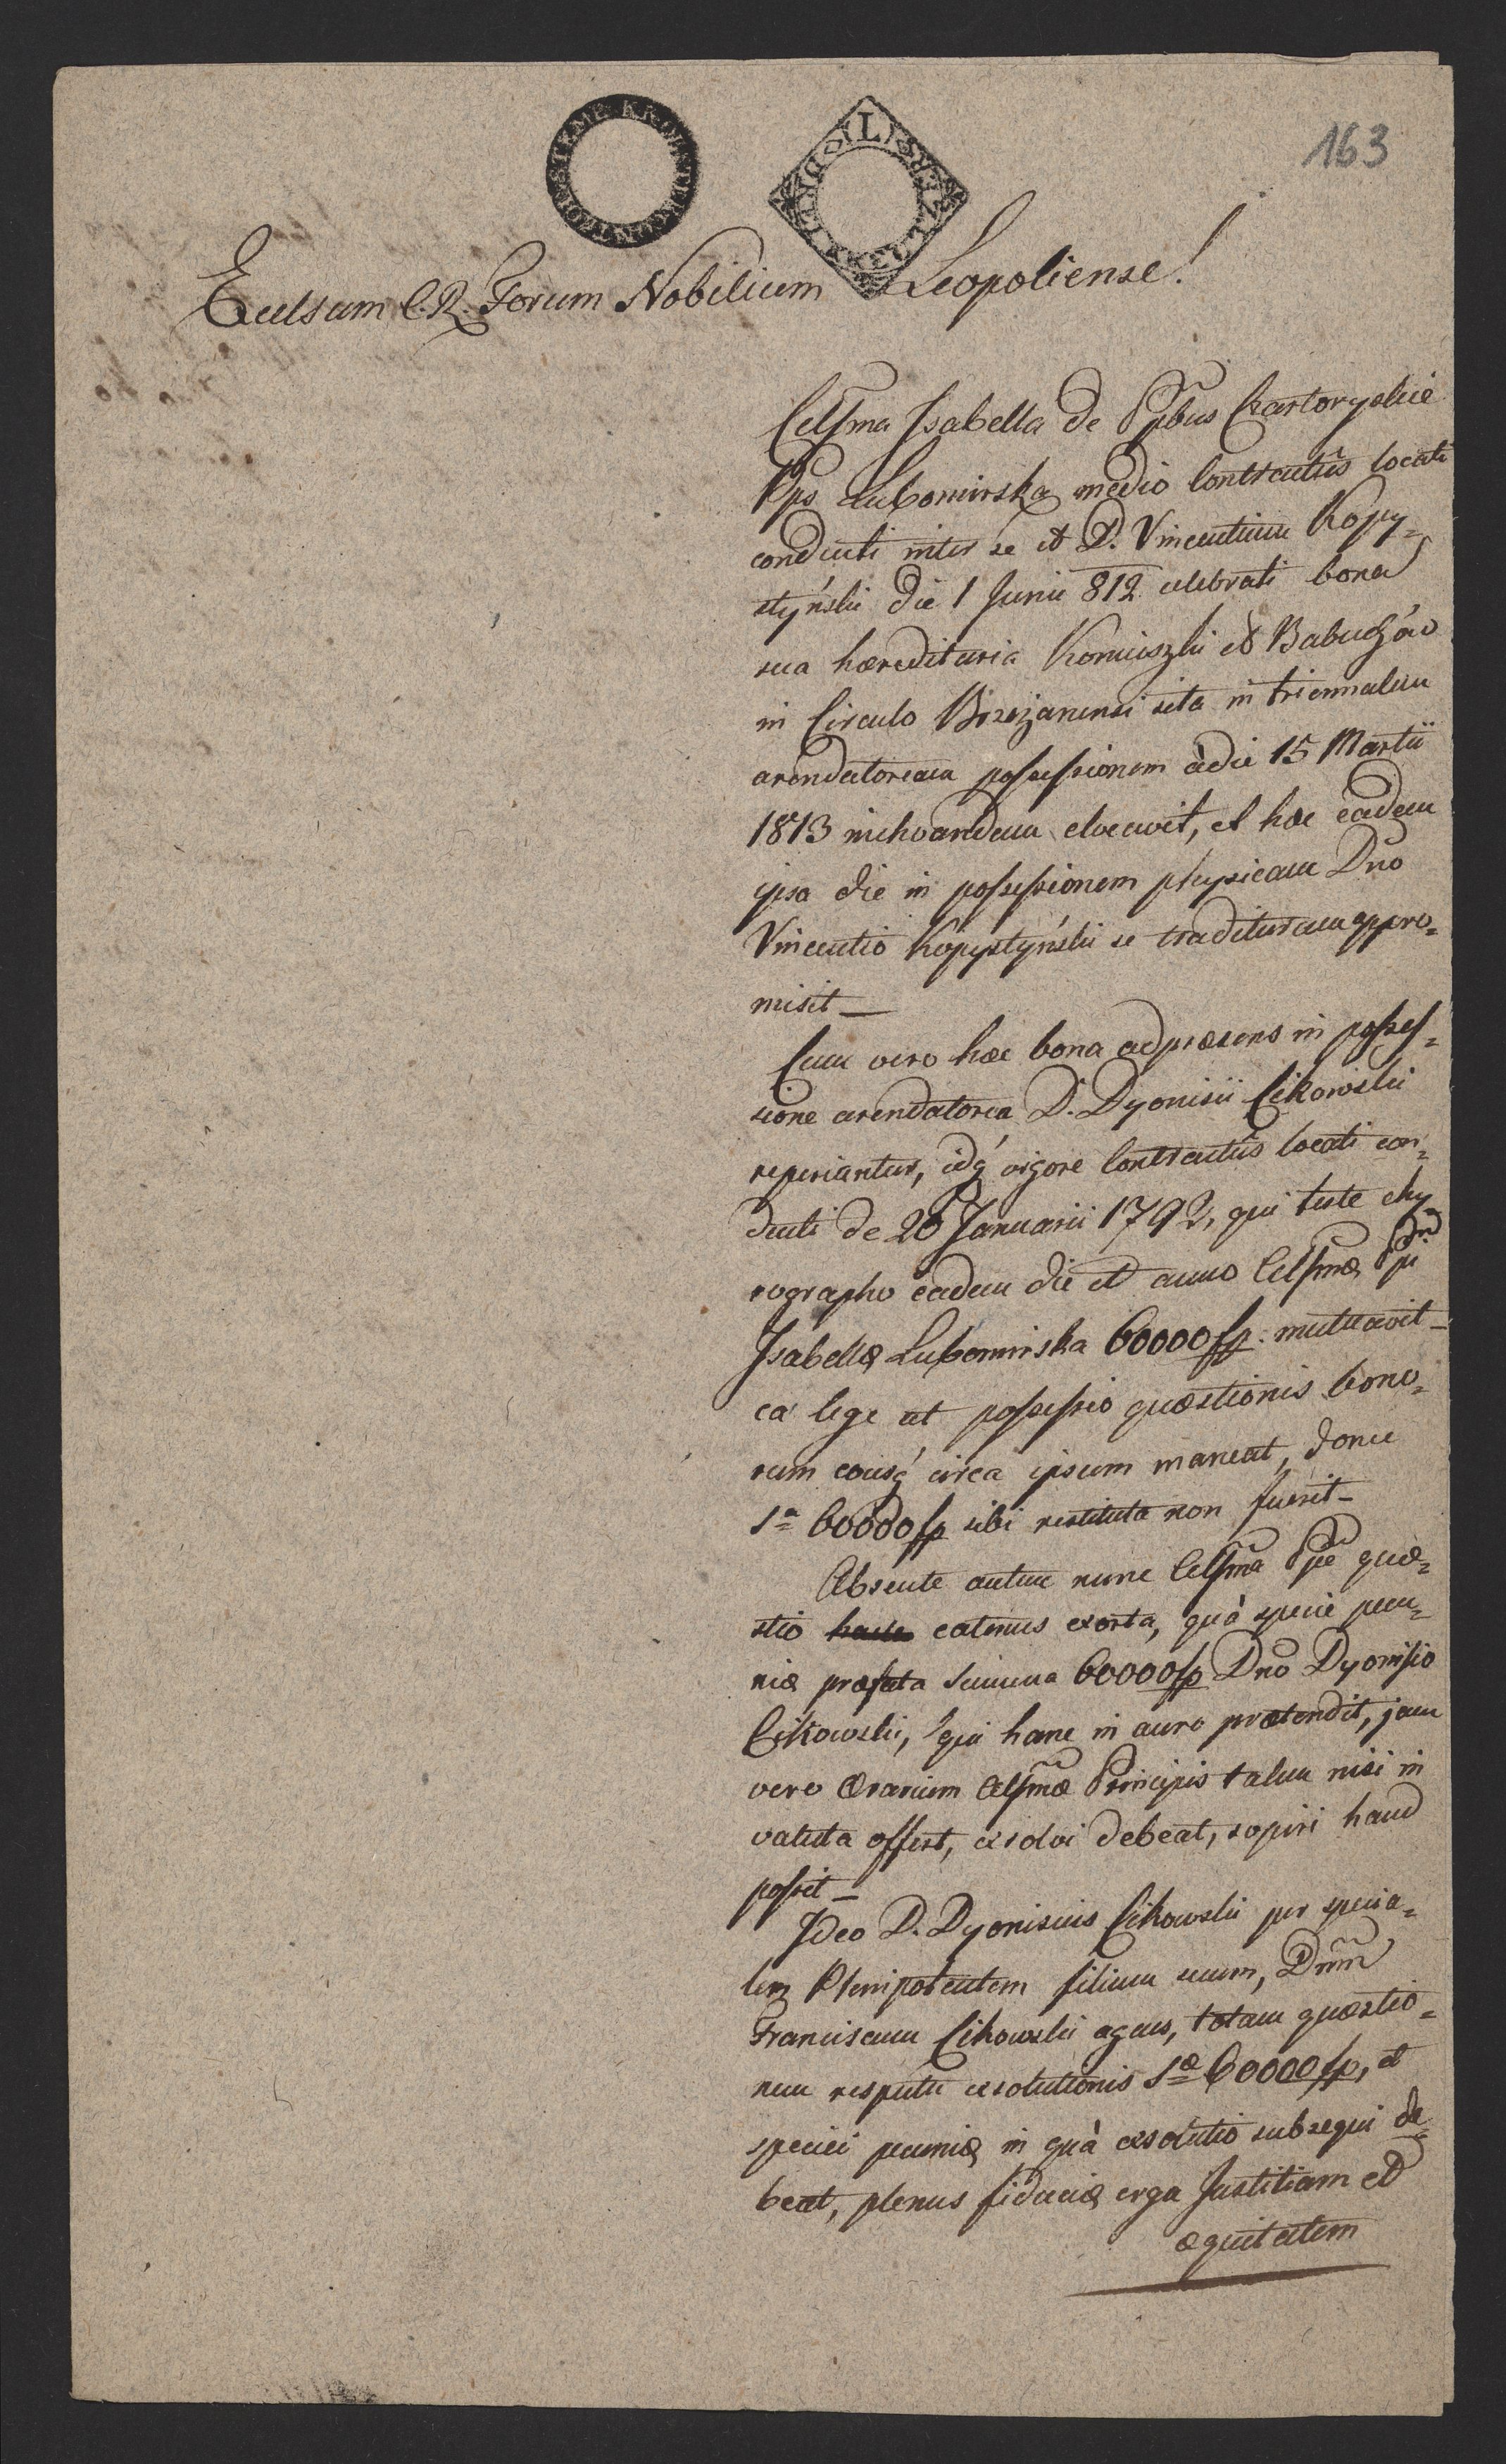 163
Excelsum C. R. Forum Nobilium Leopoliense!
Celssma Isabella de Ppibus Czartoryskie
Pps Lubomirska medio Contractûs locati
conducti inter se et D. Vincentium Kopy=
styński die 1 Junii 812 celebrati bona
sua hæreditaria Koniuszki et Babuchów
in Circulo Brzezanensi sita in triennalem
arendatoream possessionem à die 15 Martii
1813 inchoandam elocavit, et hæc eadem
ipsa die in possessionem physicam Dno
Vincentio Kopystyński se tradituram appro=
misit —
Cum vero hæc bona ad præsens in posses=
sione arendatorea D. Dyonisii Cikowski
reperiantur, idq vigore Contractûs locati con=
ducti de 20 Januarii 1792, qui teste chy
rographo eadem die et anno Celssmæ Ppi
Isabellæ Lubomirska 60000 fp. mutuavit —
ea lege ut possessio quæstionis bono=
rum eousq circa ipsum maneat, donec
Sa 60000 fp sibi restituta non fuerit —
Absente autem nunc Celssma Ppe quæ=
stio eatenus exorta, quâ specie pecu=
niæ præfata Summa 60000 fp Dno Dyonisio
Cikowski, qui hanc in auro prætendit, jam
vero Ærarium Celssmæ Principis talem nisi in
valuta offert, exsolvi debeat, sopiri haud
possit —
Ideo D. Dyonisius Cikowski per specia=
lem Plenipotentem filium suum, Dnm
Franciscum Cikowski agens, totam quæstio=
nem respectu exsolutionis Sæ 60000 fp, et
speciei pecuniæ in quâ exsolutio subsequi de
beat, plenus fiduciæ erga Justitiam et
æquitatem